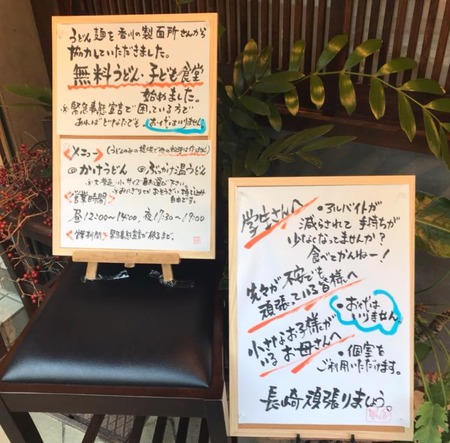 うどん麺を香川の製面所さんから
協力していただきました。
無料うどん・子ども食堂
始めました。
※緊急事態宣言で困っている方で
あればどなたでも お代はいりません
〈メニュー〉(うどんのみの提供で他の料理は付きません)
◎かけうどん ◎ぶっかけ温うどん
〈営業時間〉
自由です。
昼12:00〜14:00、夜17:30〜19:00
緊急事態宣言が終るまで。
学生さんへ
・アルバイトが
減らされて手持ちが
少なくなってませんか?
食べてかんねー!
先々が不安でも
頑張っている皆様へ
・お代は
いりません。
小さなお子様が
いるお母さんへ
・個室を
ご利用いただけます。
長崎頑張りましょう。